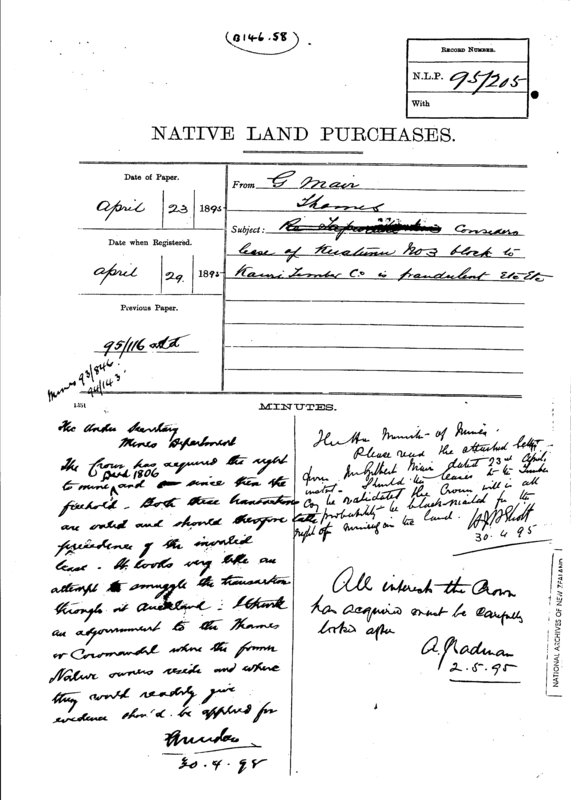 (B146.58)
RECORD NUMBER.
N.L.P. 95/205
With
NATIVE LAND PURCHASES.
Date of Paper.
April 23 1895
Date when Registered.
April 29. 1895
Previous Paper.
95/116 attd
Mines 93/846
94/143
From G Mair
Thames
Subject: Considers
lease of Kuaotunu No 3 block to
Kauri Timber Co is fraudulent Etc Etc
MINUTES.
The Under Secretary
Mines Department
The Crown has acquired the right
to mine, and since then the
freehold. Both these transactions
are valid and should therefore take
precedence of the invalid
lease. It looks very like an
attempt to smuggle the transaction
through in Auckland. I think
an adjournment to the Thames
or Coromandel where the former
Native owners reside and where
they could readily give
evidence should be applied for
30.4.95
The Hon Minister of Mines.
Please read the attached letter
from Mr Gilbert Mair dated 23rd April,
instant. Should the leases to the Timber
Coy be validated the Crown will in all
probability be blackmailed for the
right of mining on the land.
30.4.95
All interests the Crown
has acquired must be carefully
looked after
A. J. Cadman
2.5.95
NATIONAL ARCHIVES OF NEW ZEALAND